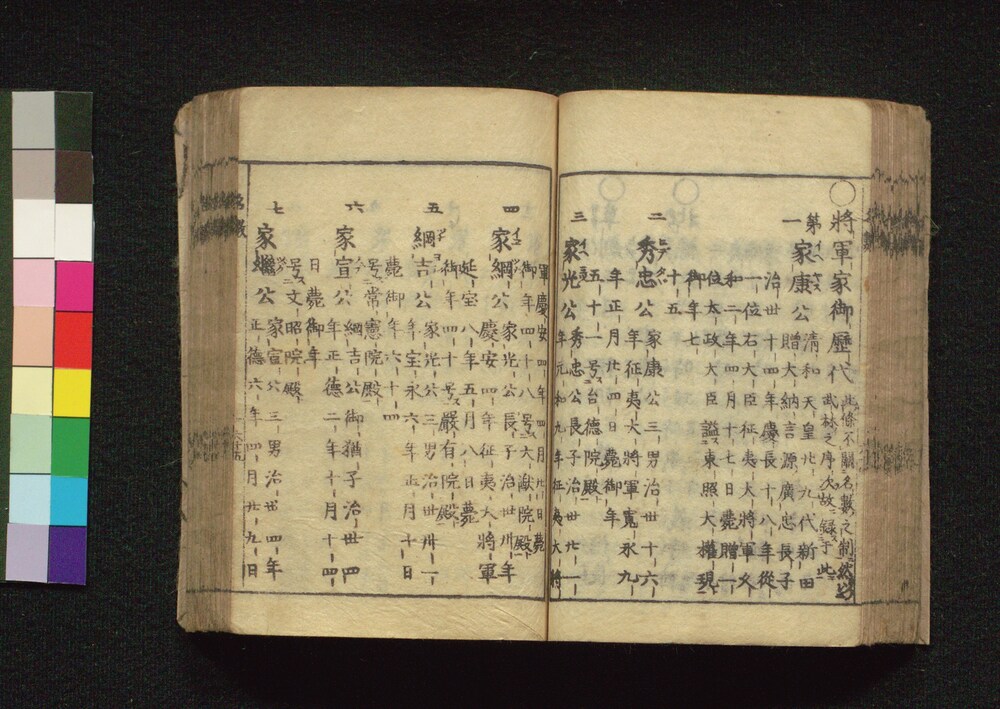 ○將軍家御歴代
此條不關名數之制然
武林之序次故録于此
第一 家康公 清和天皇廿九代新田
贈大納言源廣忠長子
治世十四年慶長十八年從
一位右大臣征夷大將軍
和二年四月十七日薨贈一
位太政大臣謚東照大權現
御年七
十五
二 秀忠公 家康公三男治世十六
年征夷大將軍寛永九
年正月廿四日薨御年
五十一号台德院殿
三 家光公 秀忠公長子治世廿一
年元和九年征夷大將
軍慶安四年四月廿日薨
御年四十八号大猷院殿
四 家綱公 家光公長子治世卅年
慶安四年征夷大將軍
延宝八年五月八日薨
御年四十号嚴有院殿
五 綱吉公 家光公三男治世卅一
年宝永六年正月十日
薨御年六十四
号常憲院殿
六 家宣公 綱吉公御猶子治世四
年正德二年十月十四
日薨御年
号文昭院殿
七 家繼公 家宣公三男治世四年
正德六年四月廿九日
名數